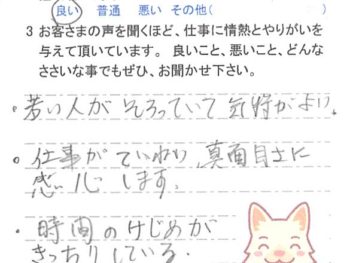 良い 普通 悪い その他(
3 お客さまの声を聞くほど、仕事に情熱とやりがいを
与えて頂いています。 良いこと、悪いこと、どんな
ささいな事でもぜひ、お聞かせ下さい。
・若い人がそろっていて気持がよい。
・仕事がていねい、真面目さに
感心します。
・時間のけじめが
きっちりしている。